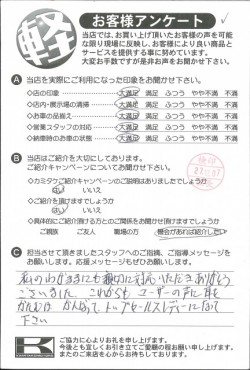 軽
お客様アンケート
当店では、お買い上げ頂いたお客様の声を可能
な限り現場に反映し、お客様により良い商品と
サービスを提供する事に努めています。
大変お手数ですが是非お声をお聞かせ下さい。
A 当店を実際にご利用になった印象をお聞かせ下さい。
◇店の印象 大満足 満足 ふつう やや不満 不満
◇店内・展示場の清掃 大満足 満足 ふつう やや不満 不満
◇お車の品揃え 大満足 満足 ふつう やや不満 不満
◇営業スタッフの対応 大満足 満足 ふつう やや不満 不満
◇納車時のお車の状態 大満足 満足 ふつう やや不満 不満
B 当店はご紹介を大切にしております。
ご紹介キャンペーンについてお聞かせ下さい。
◇カミタケご紹介キャンペーンのご説明はありましたでしょうか
はい いいえ
◇ご紹介を頂けますでしょうか
はい いいえ
◇具体的にご紹介頂ける方とのご関係をお聞かせ頂けますでしょうか
ご親族 ご友人 職場の方 機会があれば紹介したい
C 担当させて頂きましたスタッフへのご指摘、ご指導メッセージを
お願いします。応援メッセージもぜひお願いします。
私のわがままにも親切に対応いただきありがとう
ございました。これからも、ユーザーの声に耳を
かたむけ がんばって トップセールスレディーになって
下さい
K
ご協力に心よりお礼を申し上げます。
今後とも宜しくお引き立てご愛顧の程お願い申し上げます。
またのご来店を心からお待ちしております。